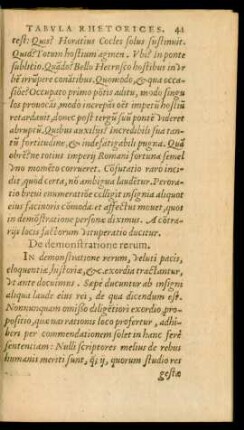 TABVLA RHETORICES. 44
test: Quis? Horatius Cocles solus sustinuit.
Quid? Totum hostium agmen. Vbi? In ponte
sublitio. Quādo? Bello Hetrusco hostibus in vr
bē irrūpere conātibus. Quomodo, & qua occa
siōe? Occupato primo pōtis aditu, modo singu
los prouocās, modo increpās oēs impetū hostiū
retardauit, donec post tergū suū pontē videret
abruptū. Quibus auxilijs? incredibili sua tan
tū fortitudine, & indefatigabili pugna. Qua
ob rē? ne totius imperij Romani fortuna semel
vno momēto corrueret. Cōfutatio raro inci
dit, quod certa, nō ambigua laudētur. Perora
tio breui enumeratiōe colligit insignia aliquot
eius facinoris cōmoda: et affectus mouet, quos
in demōstratione personæ diximus. A cōtra
rijs locis factorum vituperatio ducitur.
De demonstratione rerum.
IN demonstratione rerum, veluti pacis,
eloquentiæ, historiæ, &c. exordia tractantur,
vt ante docuimus. Sæpe ducuntur ab insigni
aliqua laude eius rei, de qua dicendum est.
Nonnunquam omisso diligētiori exordio, pro
positio, quæ narrationis loco profertur, adhi
bere per commendationem solet in hanc ferè
sententiam: Nulli scriptores melius de rebus
humanis meriti sunt, q̃; ij, quorum studio res
gestæ